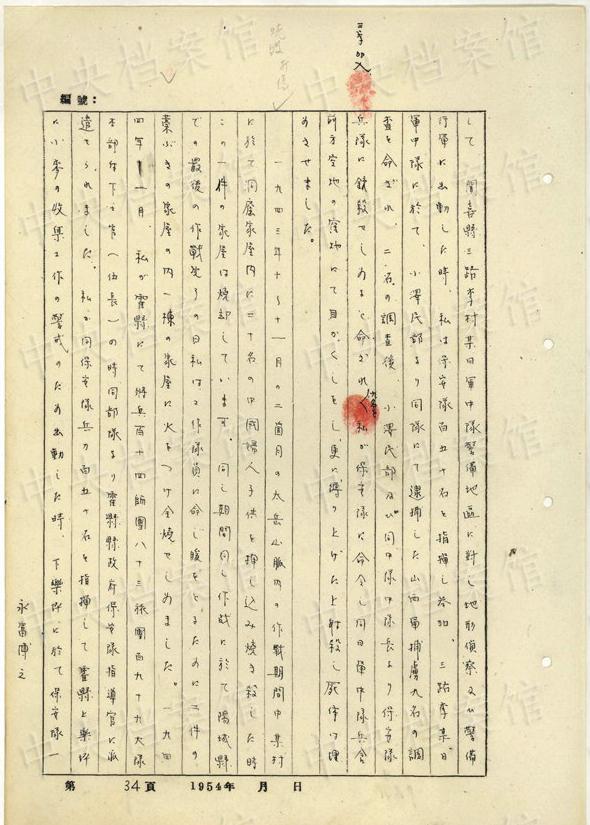 三字加入
編號：
して 聞喜縣三路李村某日軍中隊警備地區に対し地形偵察及び警備
行軍に出動した時、私は保安隊百五十名を指揮し参加、三路李某日
軍中隊に於て、小澤氏部より同隊にて逮捕した山西軍捕虜九名の調
査を命ぜられ、二名の調査後、小澤氏部及び同中隊中隊長より保安隊
兵隊に銃殺せしめると命ぜられ、私が保安隊に命令し同日軍中隊兵舎
前方空地の窪地にて目かくしをし、更に縛り上げた上射殺し死体は埋
めさせました。
一九四三年十～十一月の二箇月の太岳山脈内の作戰期間中某村
に於て同屋家屋内に三十名の中國婦人子供を押し込み焼き殺した時
この一件の家屋は焼却しています。同じ期間同じ作戰に於て陽城縣
での最後の作戰完了の日私は工作隊員に命じ暖をとるために二件の
藁ぶきの家屋の内一棟の家屋に火をつけ全燒せしめました。一九四
四年一一月、私が霍縣にて將兵百十四師團八十三旅團百九十九大隊
本部付下士官（伍長）の時同部隊より霍縣縣政府保安隊指導官に派
遣せられました。私が同保安隊兵力百五十名を指揮して霍縣上樂坪
に小麥の收集工作の警戒のため出動した時、下樂坪に於て保安隊一
永富博之
第 34頁 1954年 月 日
中央档案馆